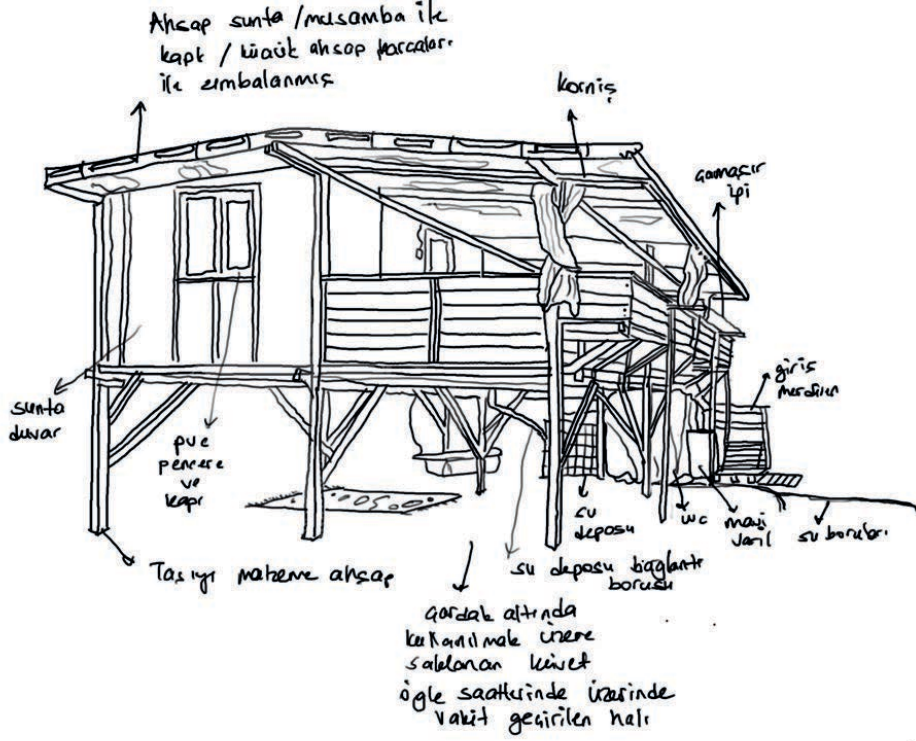 Ahşap sunta / muşamba ile
kaplı / küçük ahşap parçaları
ile zımbalanmış
korniş
çamaşır
ipi
giriş
merdiven
sunta
duvar
pvc
pencere
ve
kapı
su
deposu
wc
mavi
varil
su boruları
Taşıyı malzeme ahşap
su deposu bağlantı
borusu
çardak altında
kullanılmak üzere
saklanan küvet
öğle saatlerinde üzerinde
vakit geçirilen halı